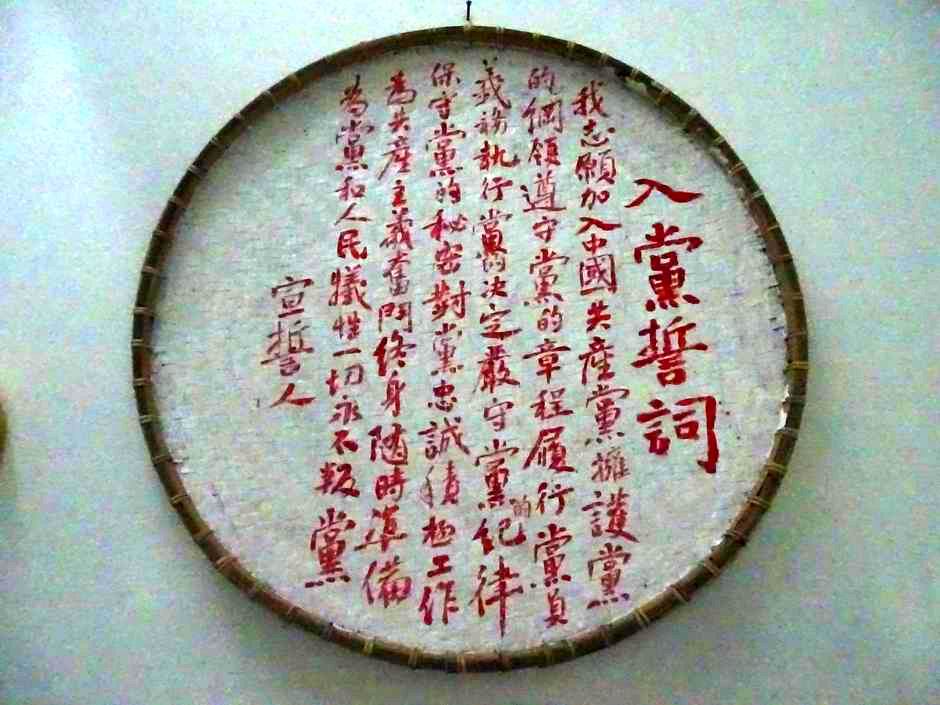 入黨誓詞
我志願加入中國共産黨擁護黨
的綱領遵守黨的章程履行黨員
義務執行黨的決定嚴守黨的紀律
保守黨的秘密對黨忠誠積極工作
為共産主義奮鬥終身随時準備
為黨和人民犧牲一切永不叛黨
宣誓人